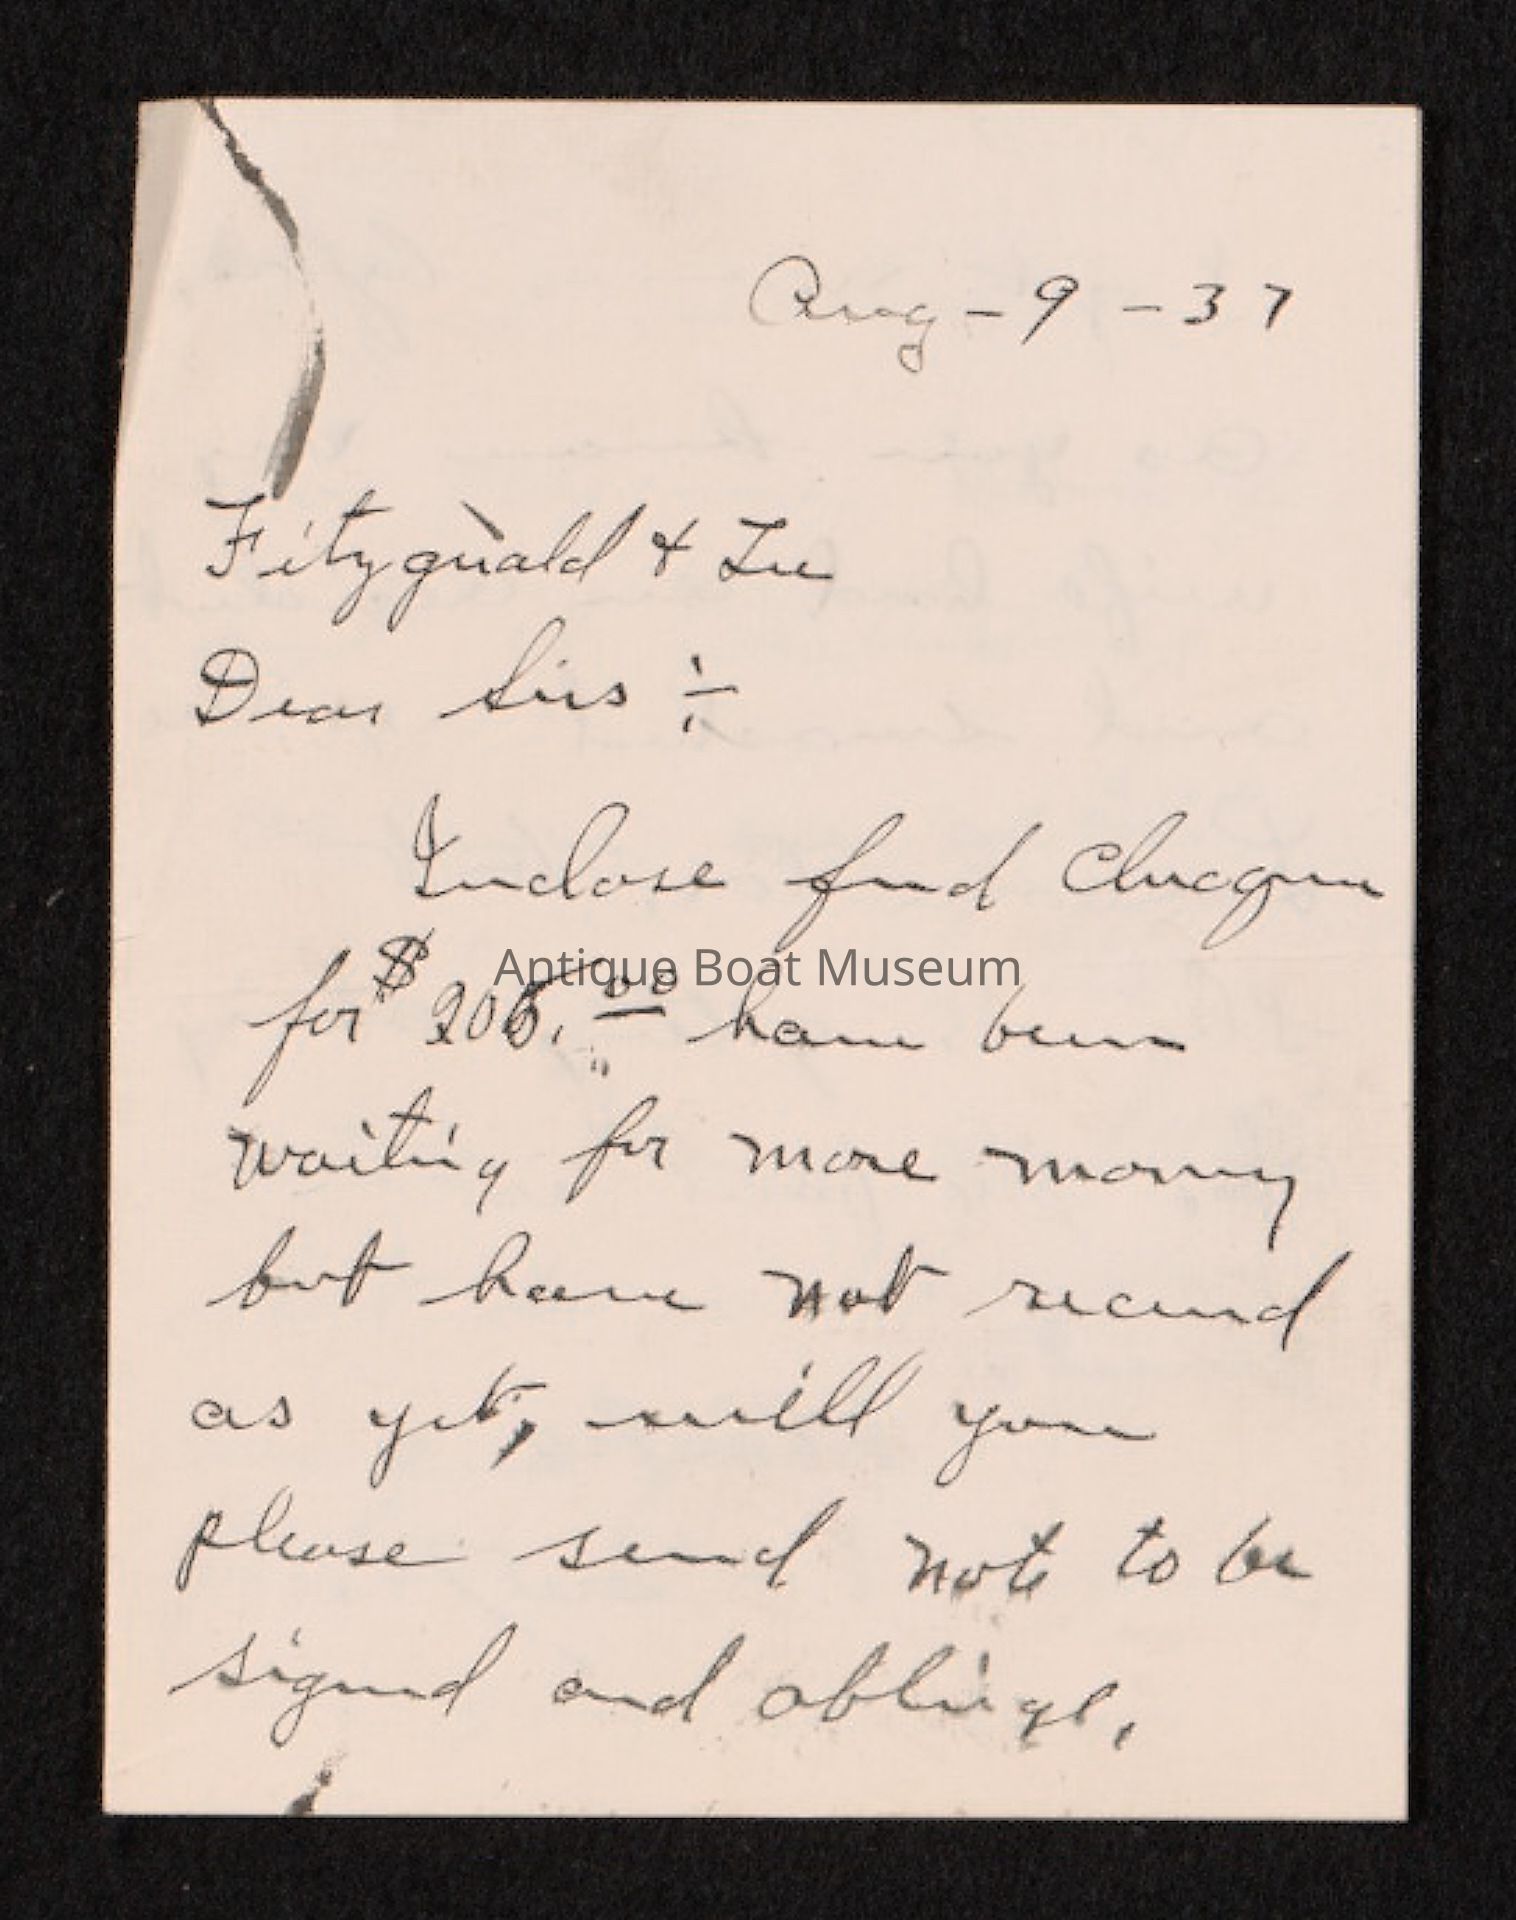 Aug - 9 - 37
Fitzgerald & Lee
Dear Sirs :-
Inclose find Checque
for $ 205.00 have been
Antique Boat Museum
waiting for more money
but have not received
as yet, will you
please send note to be
signed and obliege.